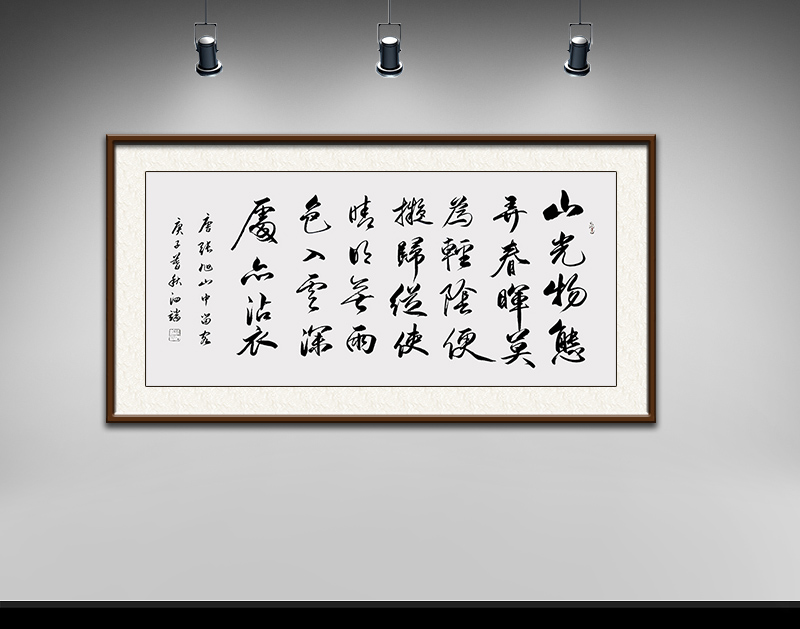 山光物態
弄春暉莫
為輕陰便
擬歸縱使
晴明無雨
色入雲深
處亦沾衣
唐張旭山中留客
庚子暮秋